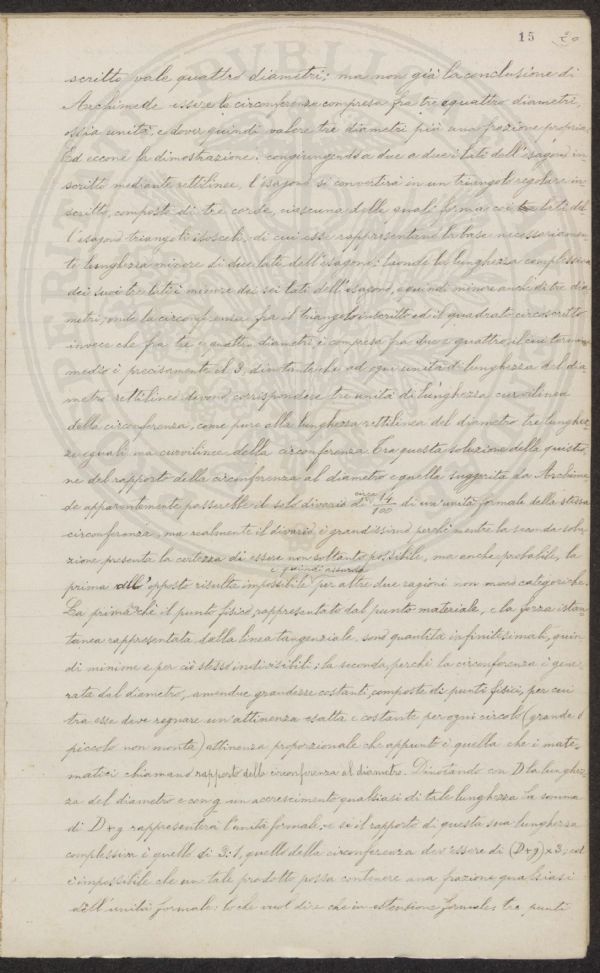 15 20
scritto vale quattro diametri; ma non già la conclusione di
Archimede essere la circonferenza compresa fra tre e quattro diametri,
ossia unità, e dover quindi valere tre diametri più una frazione propria.
Ed eccone la dimostrazione: congiungendo a due a due i lati dell'esagono in
scritto mediante rettilinee, l'esagono si convertirà in un triangolo regolare in
scritto, composto di tre corde, ciascuna delle quali forma coi lati del
l'esagono triangoli isosceli, di cui esse rappresentano la base necessariamen
te lunghezza minore di due lati dell'esagono; laonde la lunghezza complessiva
dei suoi tre lati è minore dei sei lati dell'esagono, e quindi minore anche di tre dia
metri; onde la circonferenza fra il triangolo inscritto ed il quadrato circoscritto
invece che fra tre e quattro diametri, è compresa fra due e quattro, il cui termine
medio è precisamente il 3, dinotante che ad ogni unità di lunghezza del dia
metro rettilineo devono corrispondere tre unità di lunghezza curvilinea
della circonferenza, come pure alla lunghezza rettilinea del diametro tre lunghez
ze eguali ma curvilinee della circonferenza. Tra questa soluzione della quistio
ne del rapporto della circonferenza al diametro e quella suggerita da Archime
de apparentemente passerebbe il solo divario di circa 14/100 di un'unità formale della stessa
circonferenza, ma realmente il divario è grandissimo perché mentre la seconda solu
zione presenta la certezza di essere non soltanto possibile, ma anche probabile, la
prima all'opposto risulta impossibile e quindi assurda per altre due ragioni non meno categoriche.
La prima è che il punto fisico, rappresentato dal punto materiale, e la forza istan
tanea rappresentata dalla linea tangenziale, sono quantità infinitesimali, quin
di minime e per ciò stesso indivisibili; la seconda, perché la circonferenza è gene
rata dal diametro, amendue grandezze costanti, composte di punti fisici, per cui
tra esse deve regnare un'attinenza esatta e costante per ogni circolo (grande o
piccolo non monta) attinenza proporzionale che appunto è quella che i mate
matici chiamano rapporto della circonferenza al diametro. Dinotando con D la lunghez
za del diametro e con g un accrescimento qualsiasi di tale lunghezza la somma
di D+g rappresenterà l'unità formale, e se il rapporto di questa sua lunghezza
complessiva è quello di 3:1, quello della circonferenza dev'essere di (D+g)×3; ed
è impossibile che un tale prodotto possa contenere una frazione qualsiasi
dell'unità formale: lo che vuol dire che in estensione formale, tre punti